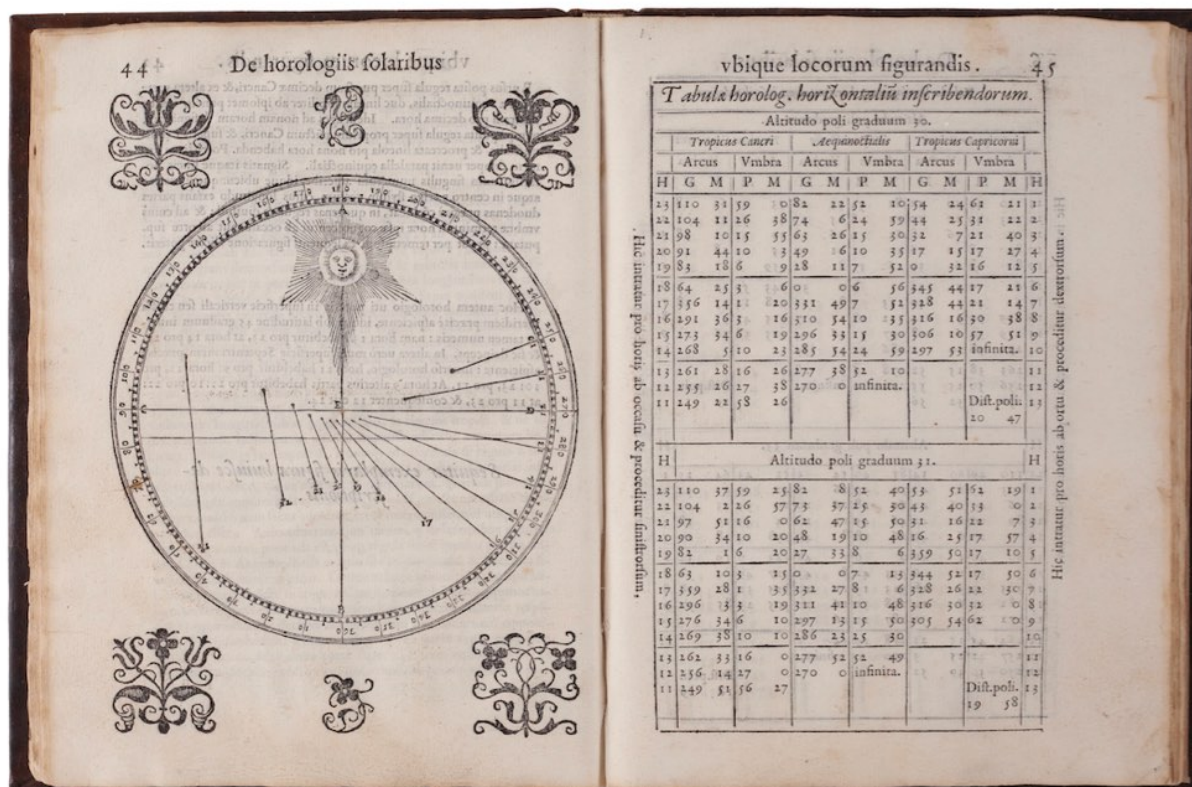 44 De horologiis ſolaribus
vbique locorum figurandis. 45
Tabulæ horolog. horizontaliũ inſcribendorum.
Altitudo poli graduum 30.
Tropicus Cancri Aequinoctialis Tropicus Capricorni
Arcus Vmbra Arcus Vmbra Arcus Vmbra
H G M P M G M P M G M P M H
23 110 31 59 0 82 22 52 10 54 24 61 21 1
22 104 11 26 38 74 6 24 59 44 25 31 22 2
21 98 10 15 55 63 26 15 30 32 7 21 40 3
20 91 44 10 3 49 6 10 35 17 15 17 27 4
19 83 18 6 9 28 11 7 52 0 32 16 12 5
18 64 25 3 6 0 0 6 56 345 44 17 21 6
17 356 14 1 20 331 49 7 52 328 44 21 14 7
16 291 36 3 16 310 54 10 35 316 16 30 38 8
15 273 34 6 19 296 33 15 30 306 10 57 51 9
14 268 5 10 23 285 54 24 59 297 53 infinita. 10
13 261 28 16 26 277 38 52 10 11
12 255 26 27 38 270 0 infinita. 12
11 249 22 58 26 Diſt. poli. 13
20 47
H Altitudo poli graduum 31. H
23 110 37 59 25 82 8 52 40 53 51 62 19 1
22 104 2 26 57 73 37 25 30 43 40 33 0 2
21 97 51 16 0 62 47 15 50 31 16 22 7 3
20 90 34 10 20 48 19 10 48 16 25 17 57 4
19 82 1 6 20 27 33 8 6 359 50 17 10 5
18 63 10 3 15 0 0 7 13 344 52 17 50 6
17 359 28 1 35 332 27 8 6 328 26 22 30 7
16 296 3 3 19 311 41 10 48 316 30 32 0 8
15 276 34 6 10 297 13 15 50 305 54 62 0 9
14 269 38 10 10 286 23 25 30 10
13 262 33 16 0 277 52 52 49 11
12 256 14 27 0 270 0 infinita. 12
11 249 51 56 27 Diſt. poli. 13
19 58
Hic intratur pro horis ab occaſu & proceditur ſiniſtrorſum.
Hic intratur pro horis ab ortu & proceditur dextrorſum.